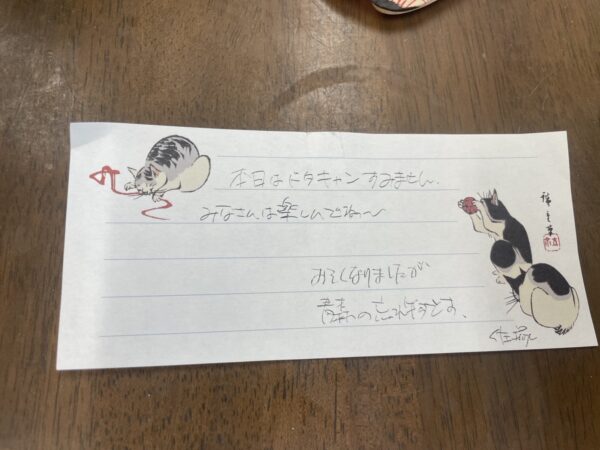 本日はドタキャンすみません.
みなさんは楽しんでね〜
おそくなりましたが
青森の忘れずです、